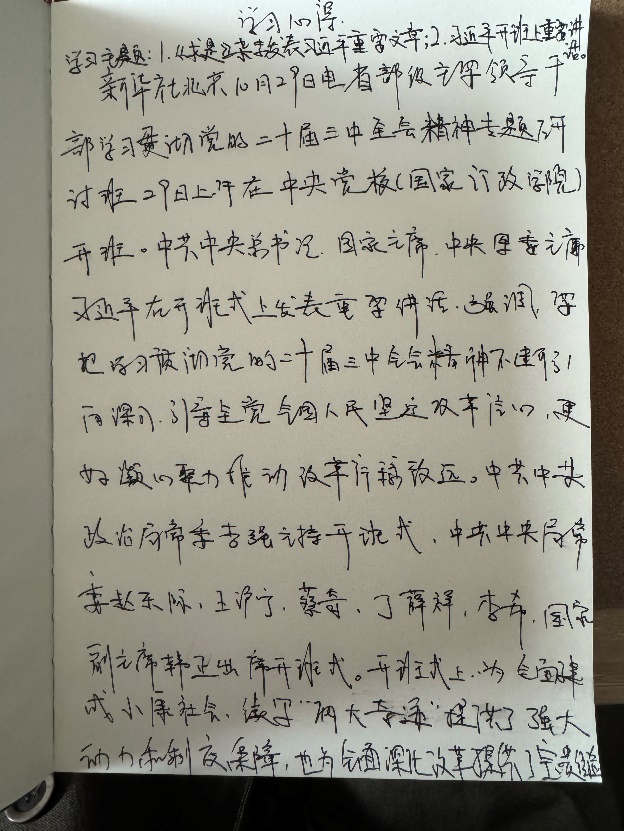 学习心得
学习主题：1.《求是》杂志发表习近平重要文章；2.习近平开班上重要讲话。
新华社北京10月29日电 省部级主要领导干
部学习贯彻党的二十届三中全会精神专题研
讨班29日上午在中央党校（国家行政学院）
开班。中共中央总书记、国家主席、中央军委主席
习近平在开班式上发表重要讲话，强调，要
把学习贯彻党的二十届三中全会精神不断引
向深入，引导全党全国人民坚定改革信心，更
好凝心聚力推动改革行稳致远。中共中央
政治局常委李强主持开班式，中共中央局常
委赵乐际，王沪宁，蔡奇，丁薛祥，李希，国家
副主席韩正出席开班式。开班式上，为全面建
成小康社会、续写“两大奇迹”提供了强大
动力和制度保障，也为全面深化改革提供了宝贵经验